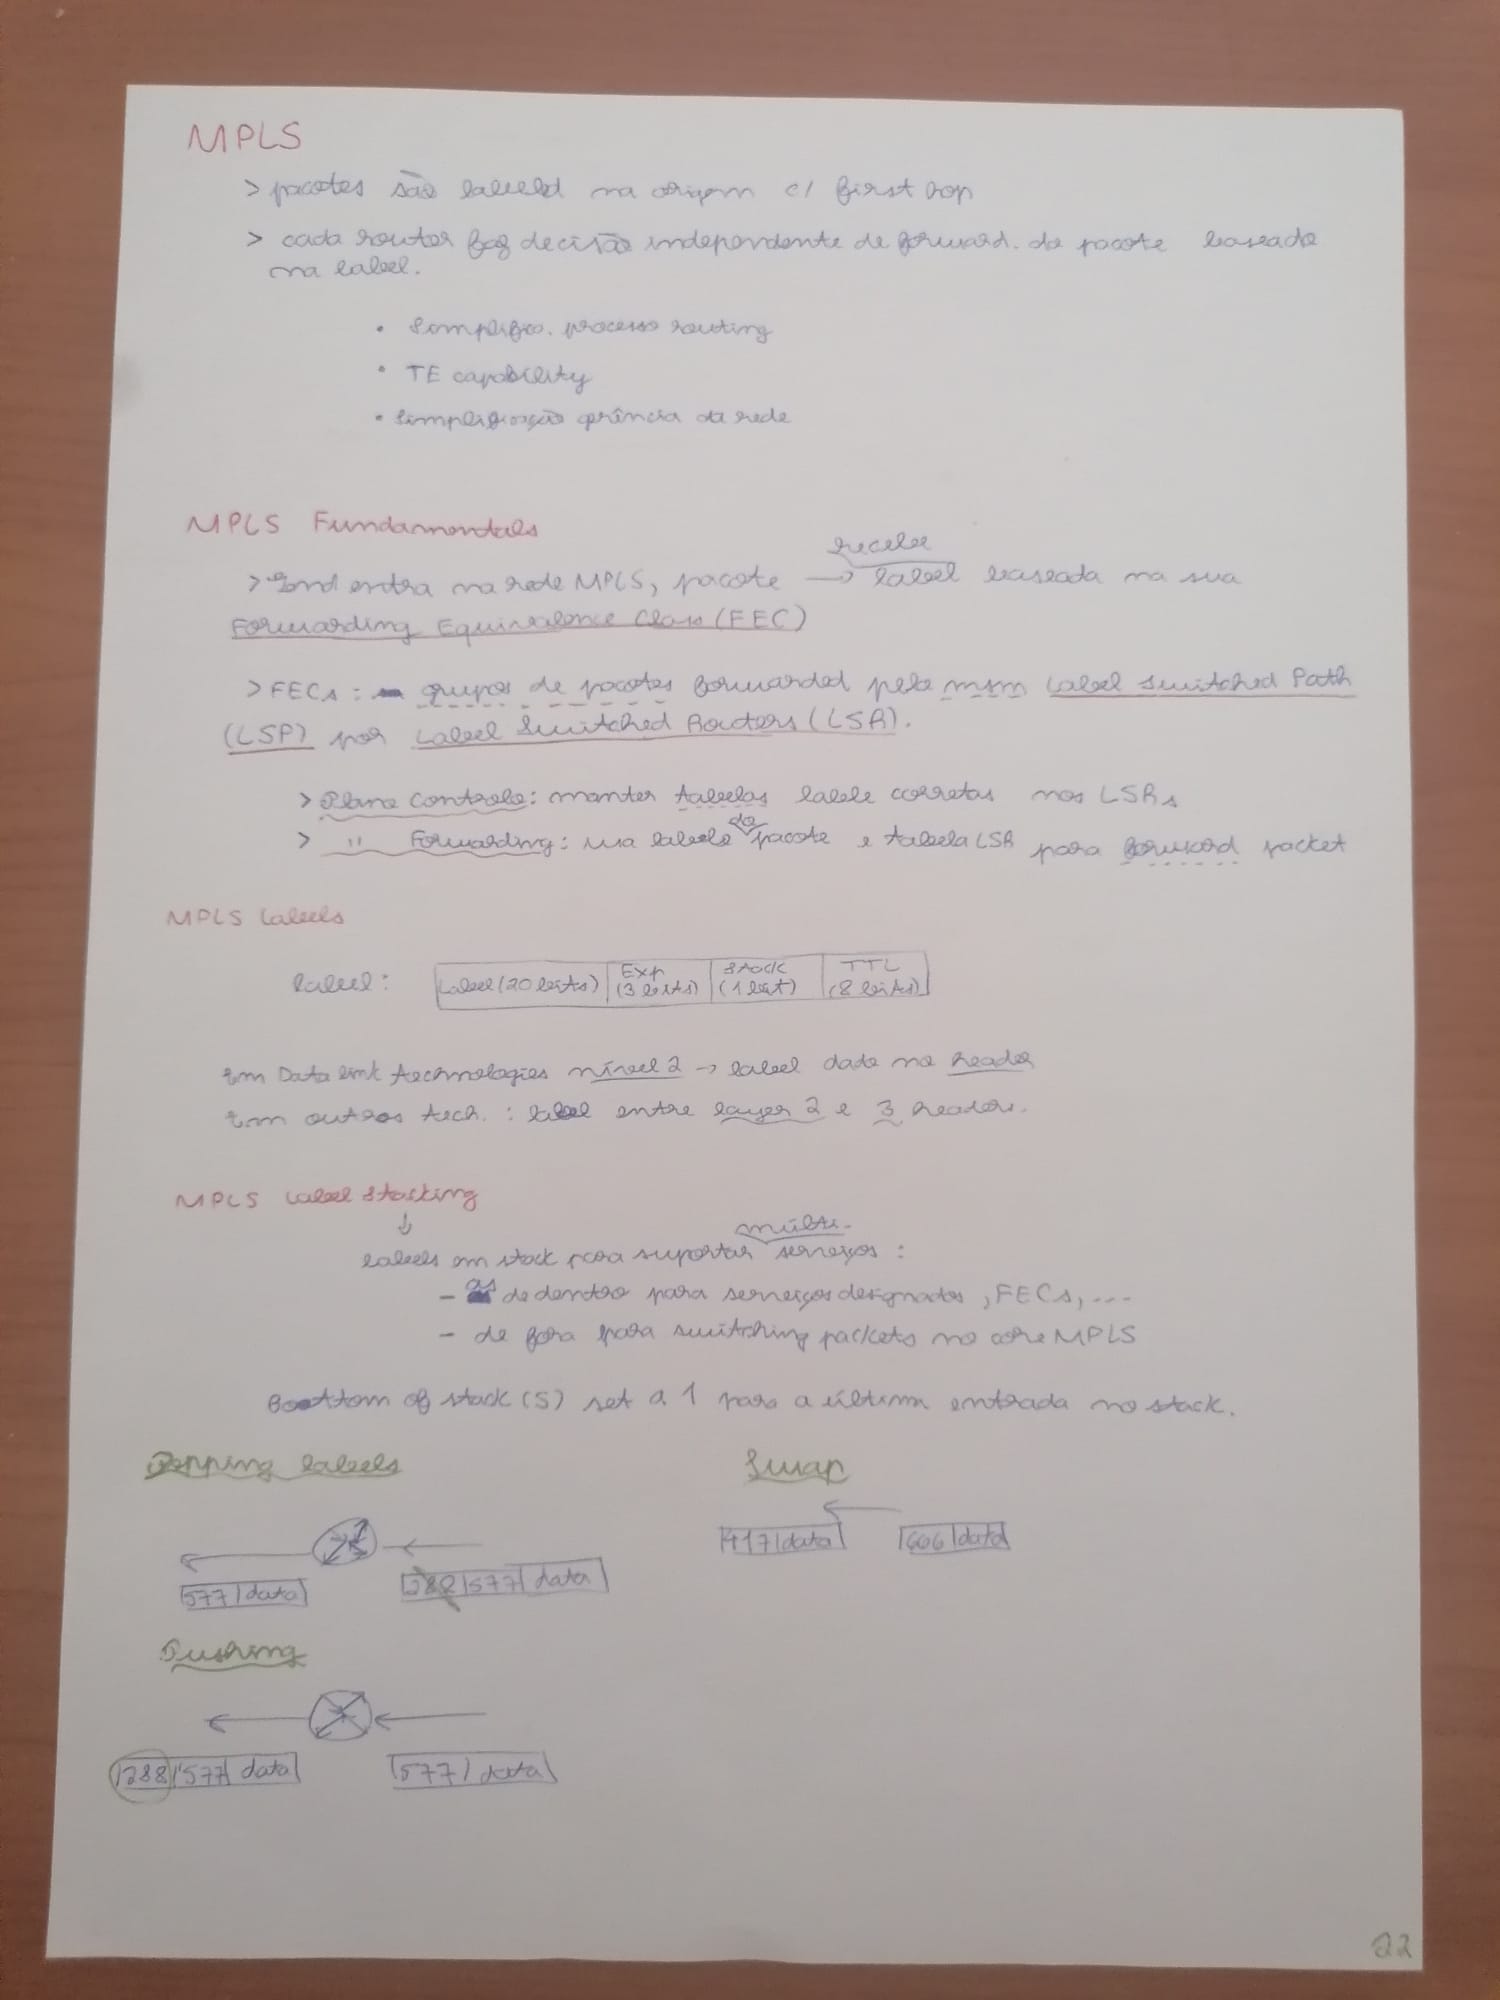 MPLS
> pacotes são labeled na origem c/ first hop
> cada router faz decisão independente de forward. do pacote baseado
na label.
• Simplific. processo routing
• TE capability
• Simplificação gerência da rede
MPLS Fundamentals
recebe
> Qnd entra na rede MPLS, pacote → label baseada na sua
Forwarding Equivalence Class (FEC)
> FECs : grupos de pacotes forwarded pelo msm Label Switched Path
(LSP) por Label Switched Routers (LSR).
> Plano Controlo: manter tabelas labels corretas nos LSRs
> " Forwarding: usa labels do pacote e tabela LSR para forward packet
MPLS Labels
label: Label (20 bits) | Exp (3 bits) | Stack (1 bit) | TTL (8 bits)
Em Data link technologies nível 2 → label dada no header
Em outros tech. : label entre layer 2 e 3 headers.
MPLS Label Stacking
↓
labels em stack para suportar múlti. serviços :
- as de dentro para serviços designados, FECs, ...
- de fora para switching packets no core MPLS
Bottom of stack (S) set a 1 para a última entrada no stack.
Popping labels Swap
417 | data 606 | data
577 | data 288 | 577 | data
Pushing
288 | 577 | data 577 | data
22